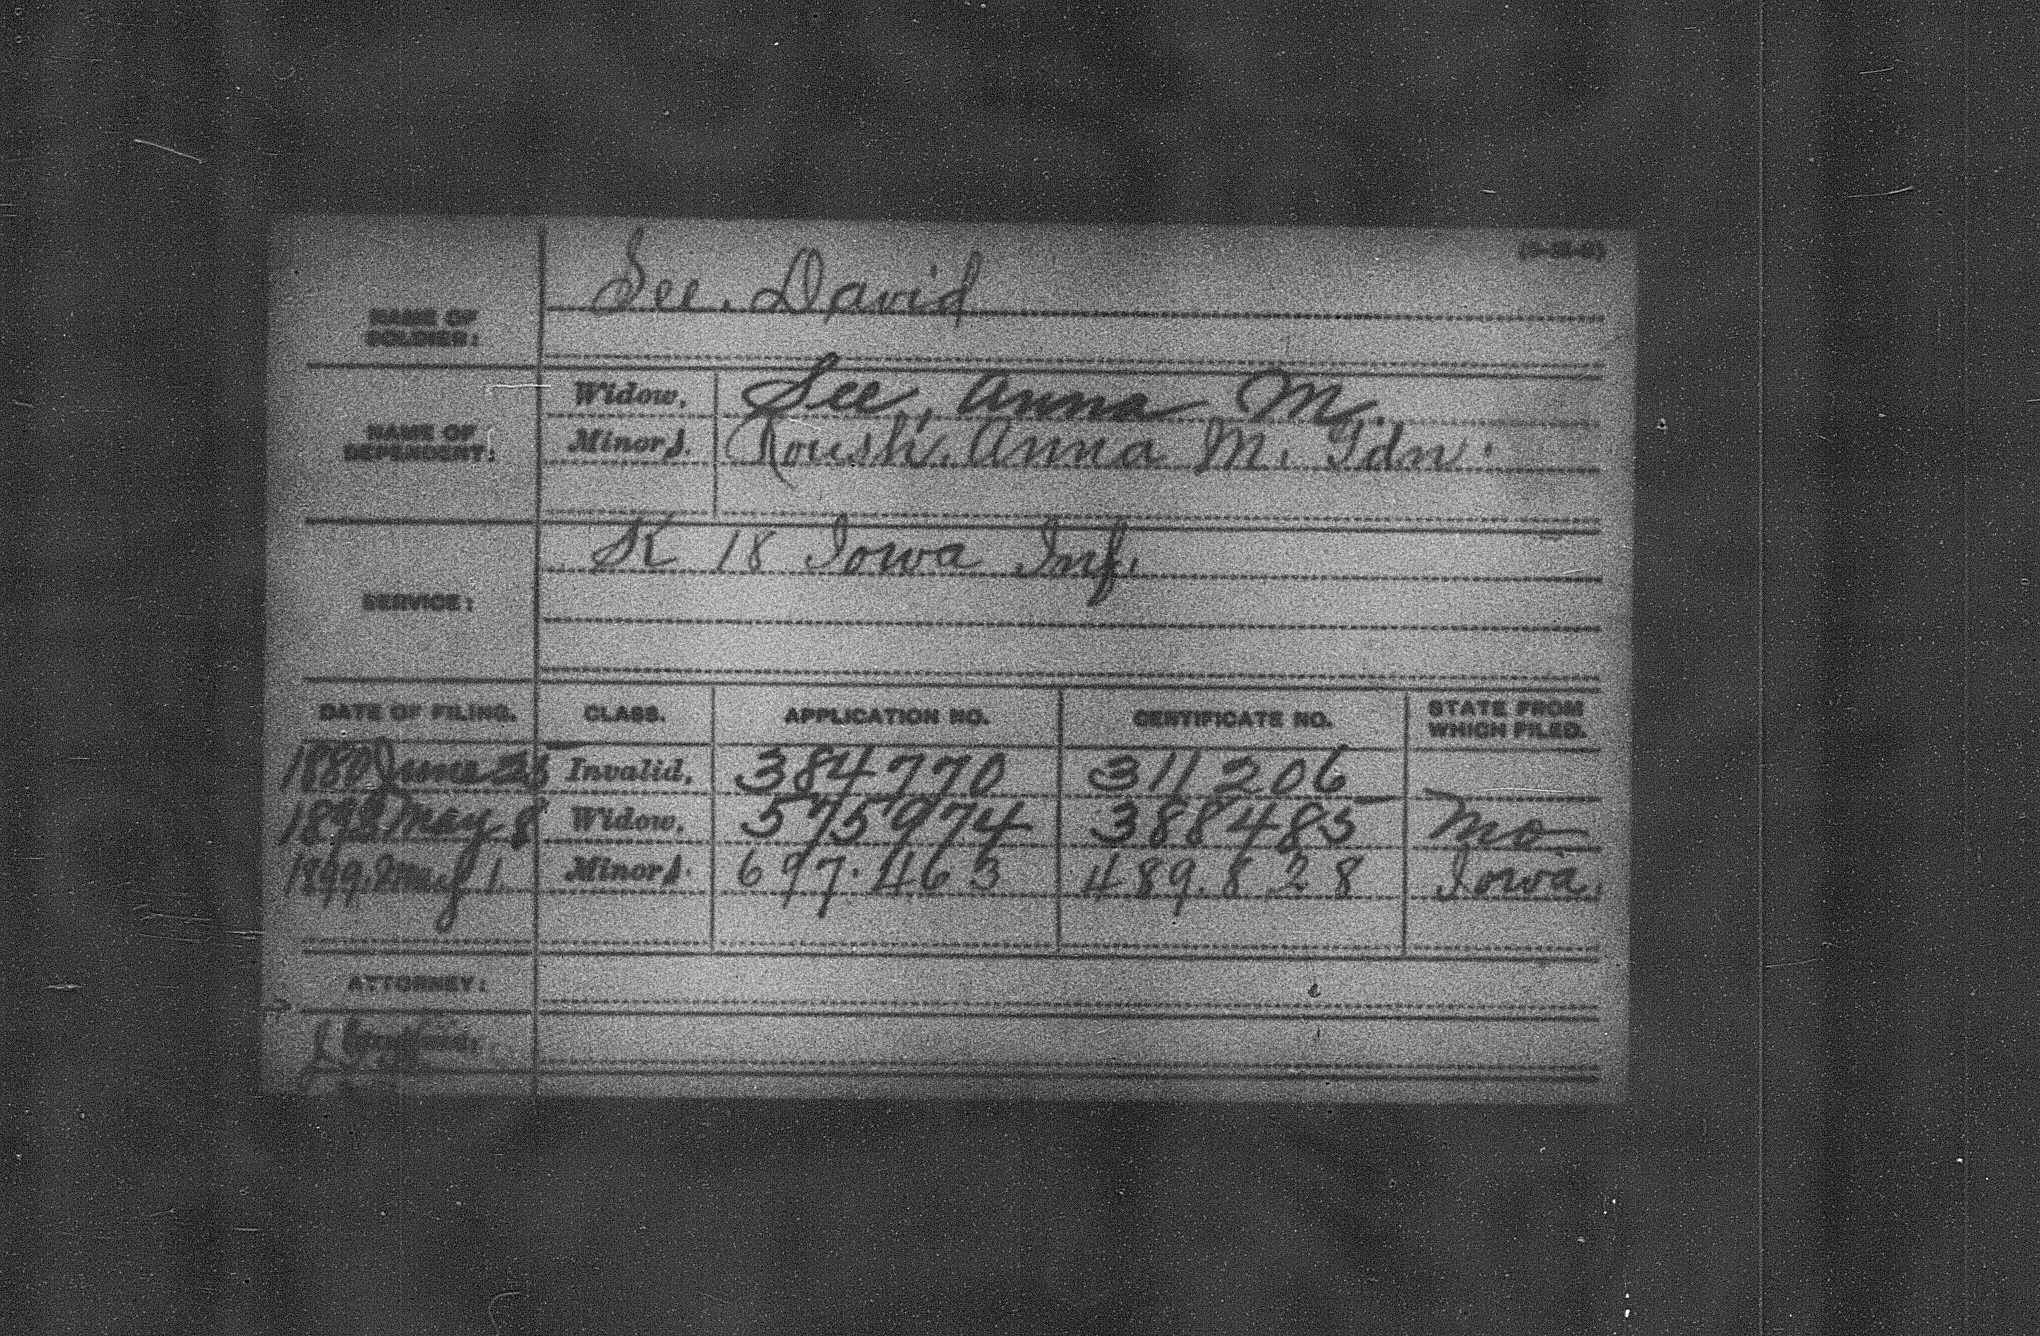 See, David
NAME OF
SOLDIER:
Widow. See, Anna M.
NAME OF
DEPENDENT:
Minors. Roush, Anna M. Gdn.
K 18 Iowa Inf.
SERVICE:
DATE OF FILING. CLASS. APPLICATION NO. CERTIFICATE NO. STATE FROM
WHICH FILED.
1880 June Invalid, 384770 311206
1893 May 8 Widow, 575974 388485 Mo.
1899. May 1. Minors. 697.463 489.828 Iowa.
ATTORNEY: